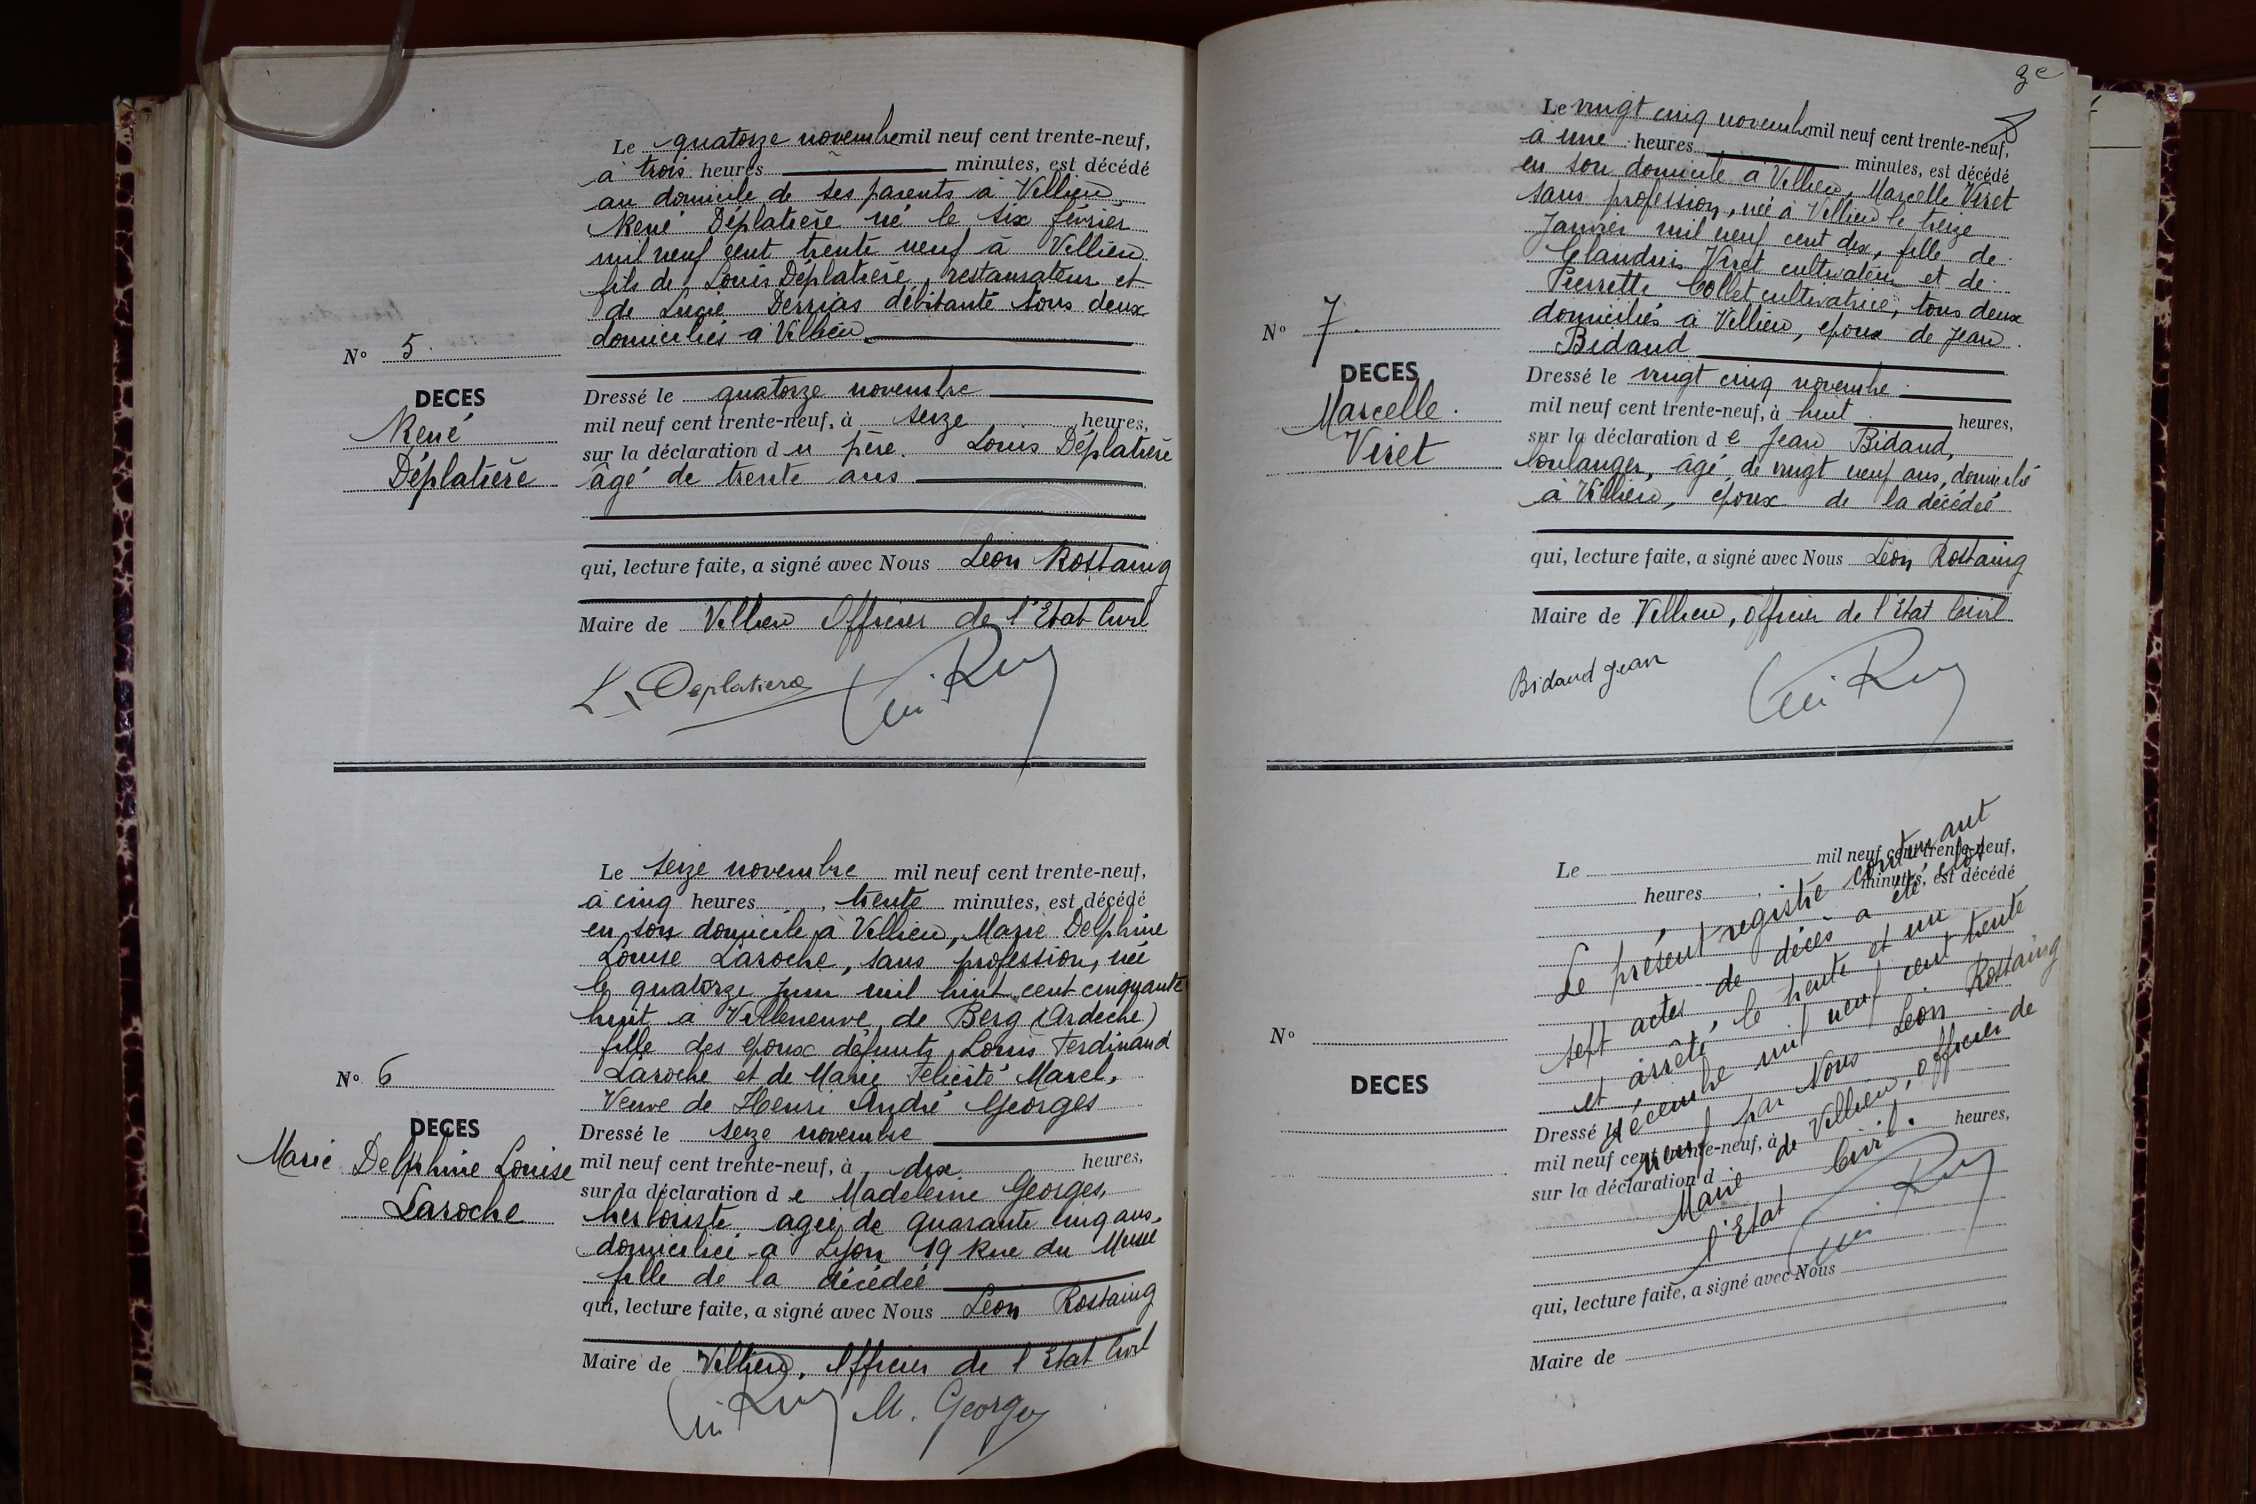 Le quatorze novembre mil neuf cent trente-neuf,
à trois heures minutes, est décédé
au domicile de ses parents a Villieu
René Déplatière né le six février
mil neuf cent trente neuf à Villieu
fils de Louis Déplatière, restaurateur et
de Lucie débitante tous deux
domiciliés a Villieu
N° 5
DECES
René
Déplatière
Dressé le quatorze novembre
mil neuf cent trente-neuf, à seize heures,
sur la déclaration du père. Louis Déplatière
âgé de trente ans
qui, lecture faite, a signé avec Nous Léon Rostaing
Maire de Villieu Officier de l'Etat Civil
L. Déplatière
Le seize novembre mil neuf cent trente-neuf,
à cinq heures, trente minutes, est décédé
en son domicile à Villieu, Marie Delphine
Louise Laroche, sans profession, née
le quatorze juin mil huit cent cinquante
huit a Villeneuve de Berg (Ardèche)
fille des epoux défunts Louis Ferdinand
Laroche et de Marie Félicité Marcel,
Veuve de Henri André Georges
N° 6
DECES
Marie Delphine Louise
Laroche
Dressé le seize novembre
mil neuf cent trente-neuf, à dix heures,
sur la déclaration de Madeleine Georges,
herboriste agée de quarante cinq ans,
domiciliée a Lyon 19 Rue du
fille de la décédée
qui, lecture faite, a signé avec Nous Léon Rostaing
Maire de Villieu, Officier de l'Etat Civil
M. Georges
Le vingt cinq novembre mil neuf cent trente-neuf,
à une heures minutes, est décédé
en son domicile à Villieu, Marcelle Viret
sans profession, née à Villieu le treize
Janvier mil neuf cent dix, fille de
Claudius Viret cultivateur et de
Pierrette Collet cultivatrice, tous deux
domiciliés à Villieu, epoux de Jean
Bidaud
N° 7.
DECES
Marcelle.
Viret
Dressé le vingt cinq novembre
mil neuf cent trente-neuf, à huit heures,
sur la déclaration de Jean Bidaud,
boulanger, âgé de vingt neuf ans, domicilié
à Villieu, époux de la décédée
qui, lecture faite, a signé avec Nous Léon Rostaing
Maire de Villieu, officier de l'Etat Civil
Bidaud Jean
Le mil neuf cent trente-neuf,
heures minutes, est décédé
N°
DECES
Dressé le
mil neuf cent trente-neuf, à heures,
sur la déclaration d
qui, lecture faite, a signé avec Nous
Maire de
Le présent registre contenant
sept actes de décès a été clos
et arrêté, le trente et un
décembre mil neuf cent trente
neuf par Nous Léon Rostaing
Maire de Villieu, officier de
l'Etat Civil.